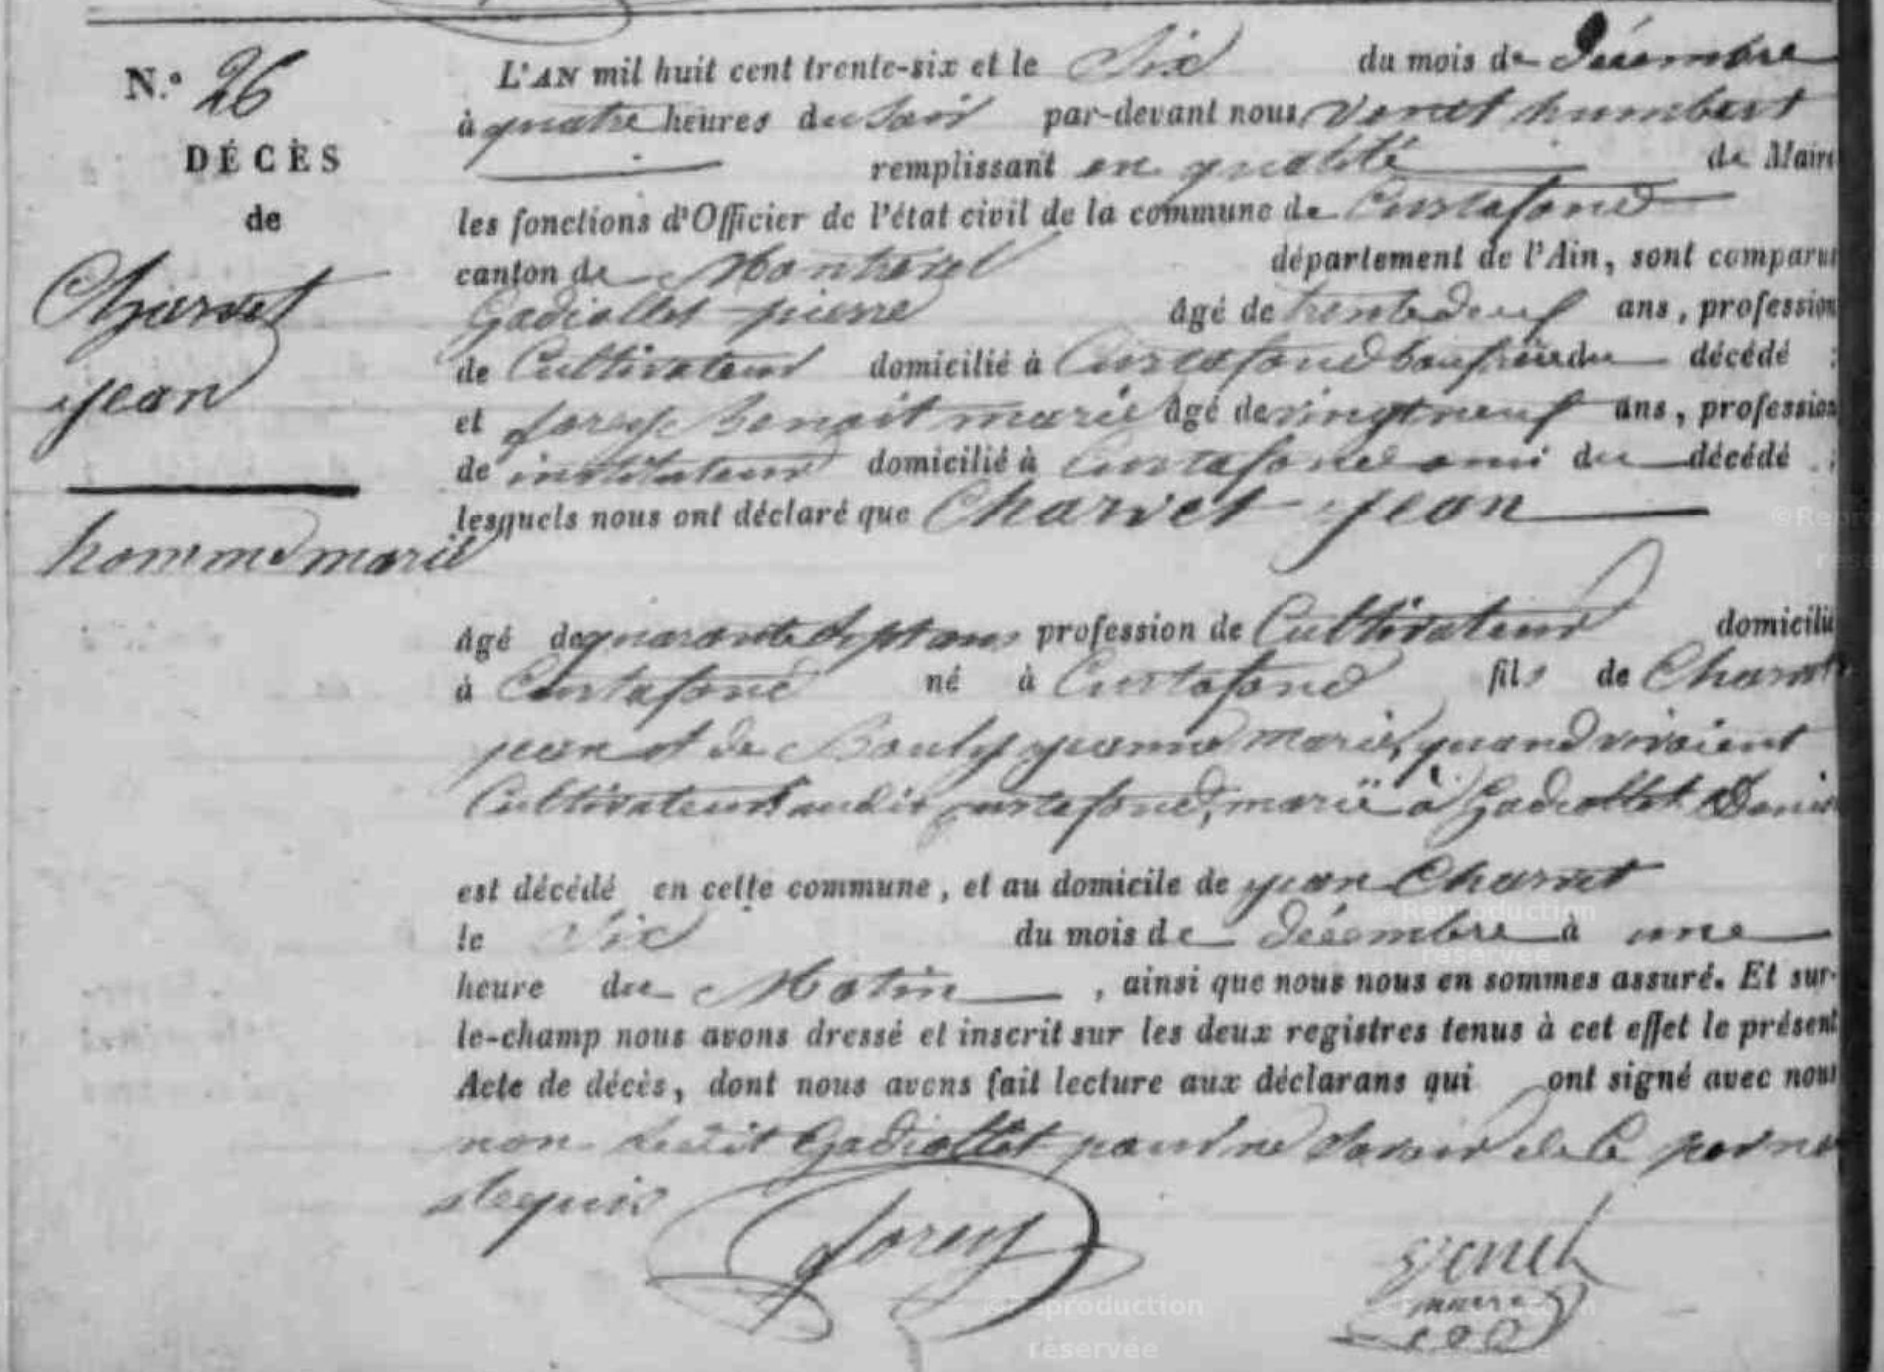 N.° 26
DÉCÈS
de
Charvet
jean
homme marié
L'AN mil huit cent trente-six et le Six du mois de Décembre
à quatre heures du Soir par-devant nous Venet humbert
remplissant en qualité de Maire
les fonctions d'Officier de l'état civil de la commune de Curtafond
canton de Montrevel département de l'Ain, sont comparus
Gadiollet pierre âgé de trente deuf ans, profession
de Cultivateur domicilié à Curtafond baufrère du décédé :
et forey Benoit marie âgé de vingt neuf ans, profession
de instituteur domicilié à Curtafond ami du décédé :
lesquels nous ont déclaré que Charvet jean
âgé de quarante Sept ans profession de Cultivateur domicilié
à Curtafond né à Curtafond fils de Charvet
jean et de Bouly jeanne marie, quand vivaient
Cultivateurs audit curtafond, marié à Gadiollet Denise
est décédé en cette commune, et au domicile de jean Charvet
le Six du mois de Décembre à une
heure du Matin, ainsi que nous nous en sommes assuré. Et sur-
le-champ nous avons dressé et inscrit sur les deux registres tenus à cet effet le présent
Acte de décès, dont nous avons fait lecture aux déclarans qui ont signé avec nous
non ledit Gadiollet pour ne Savoir de ce par nous
Requis
forey
Venet
maire
©Reproduction
réservée
©Reproduction
réservée
©Reproduction
réservée